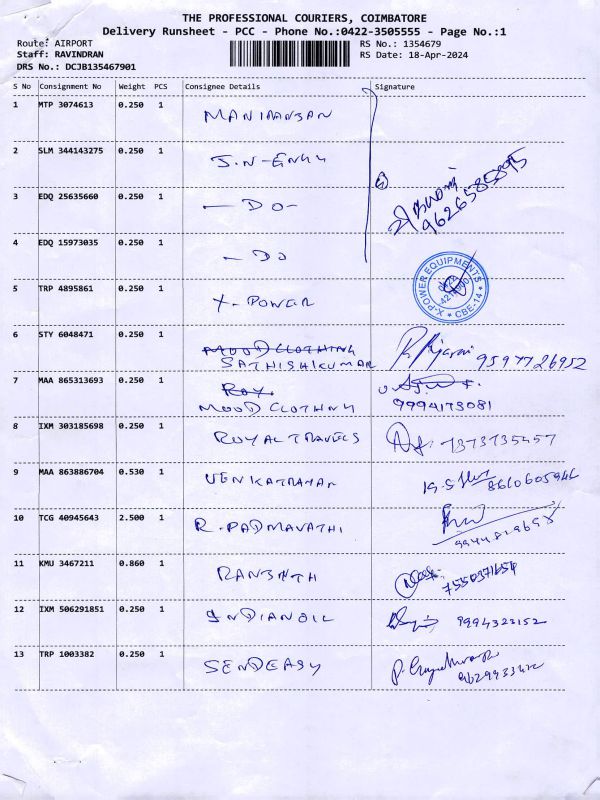 THE PROFESSIONAL COURIERS, COIMBATORE
Delivery Runsheet - PCC - Phone No.:0422-3505555 - Page No.:1
Route: AIRPORT RS No.: 1354679
Staff: RAVINDRAN RS Date: 18-Apr-2024
DRS No.: DCJB135467901
S No Consignment No Weight PCS Consignee Details Signature
1 MTP 3074613 0.250 1 MANIRANJAN
2 SLM 344143275 0.250 1 J.N-ENGG
3 EDQ 25635660 0.250 1 - DO-
9626585895
4 EDQ 15973035 0.250 1 - DO
5 TRP 4895861 0.250 1 X-POWER
X-POWER EQUIPMENTS * CBE-14 *
6 STY 6048471 0.250 1 MOOD CLOTHING
SATHISHKUMAR 9597726952
7 MAA 865313693 0.250 1 ROY.
MOOD CLOTHNG 9994173081
8 IXM 303185698 0.250 1 ROYALTRAVELS 7373735457
9 MAA 863886704 0.530 1 VENKATRAMAN 8610605946
10 TCG 40945643 2.500 1 R.PADMAVATHI
11 KMU 3467211 0.860 1 RANJNTH
12 IXM 506291851 0.250 1 INDIANOIL 9994323152
13 TRP 1003382 0.250 1 SENDEASY